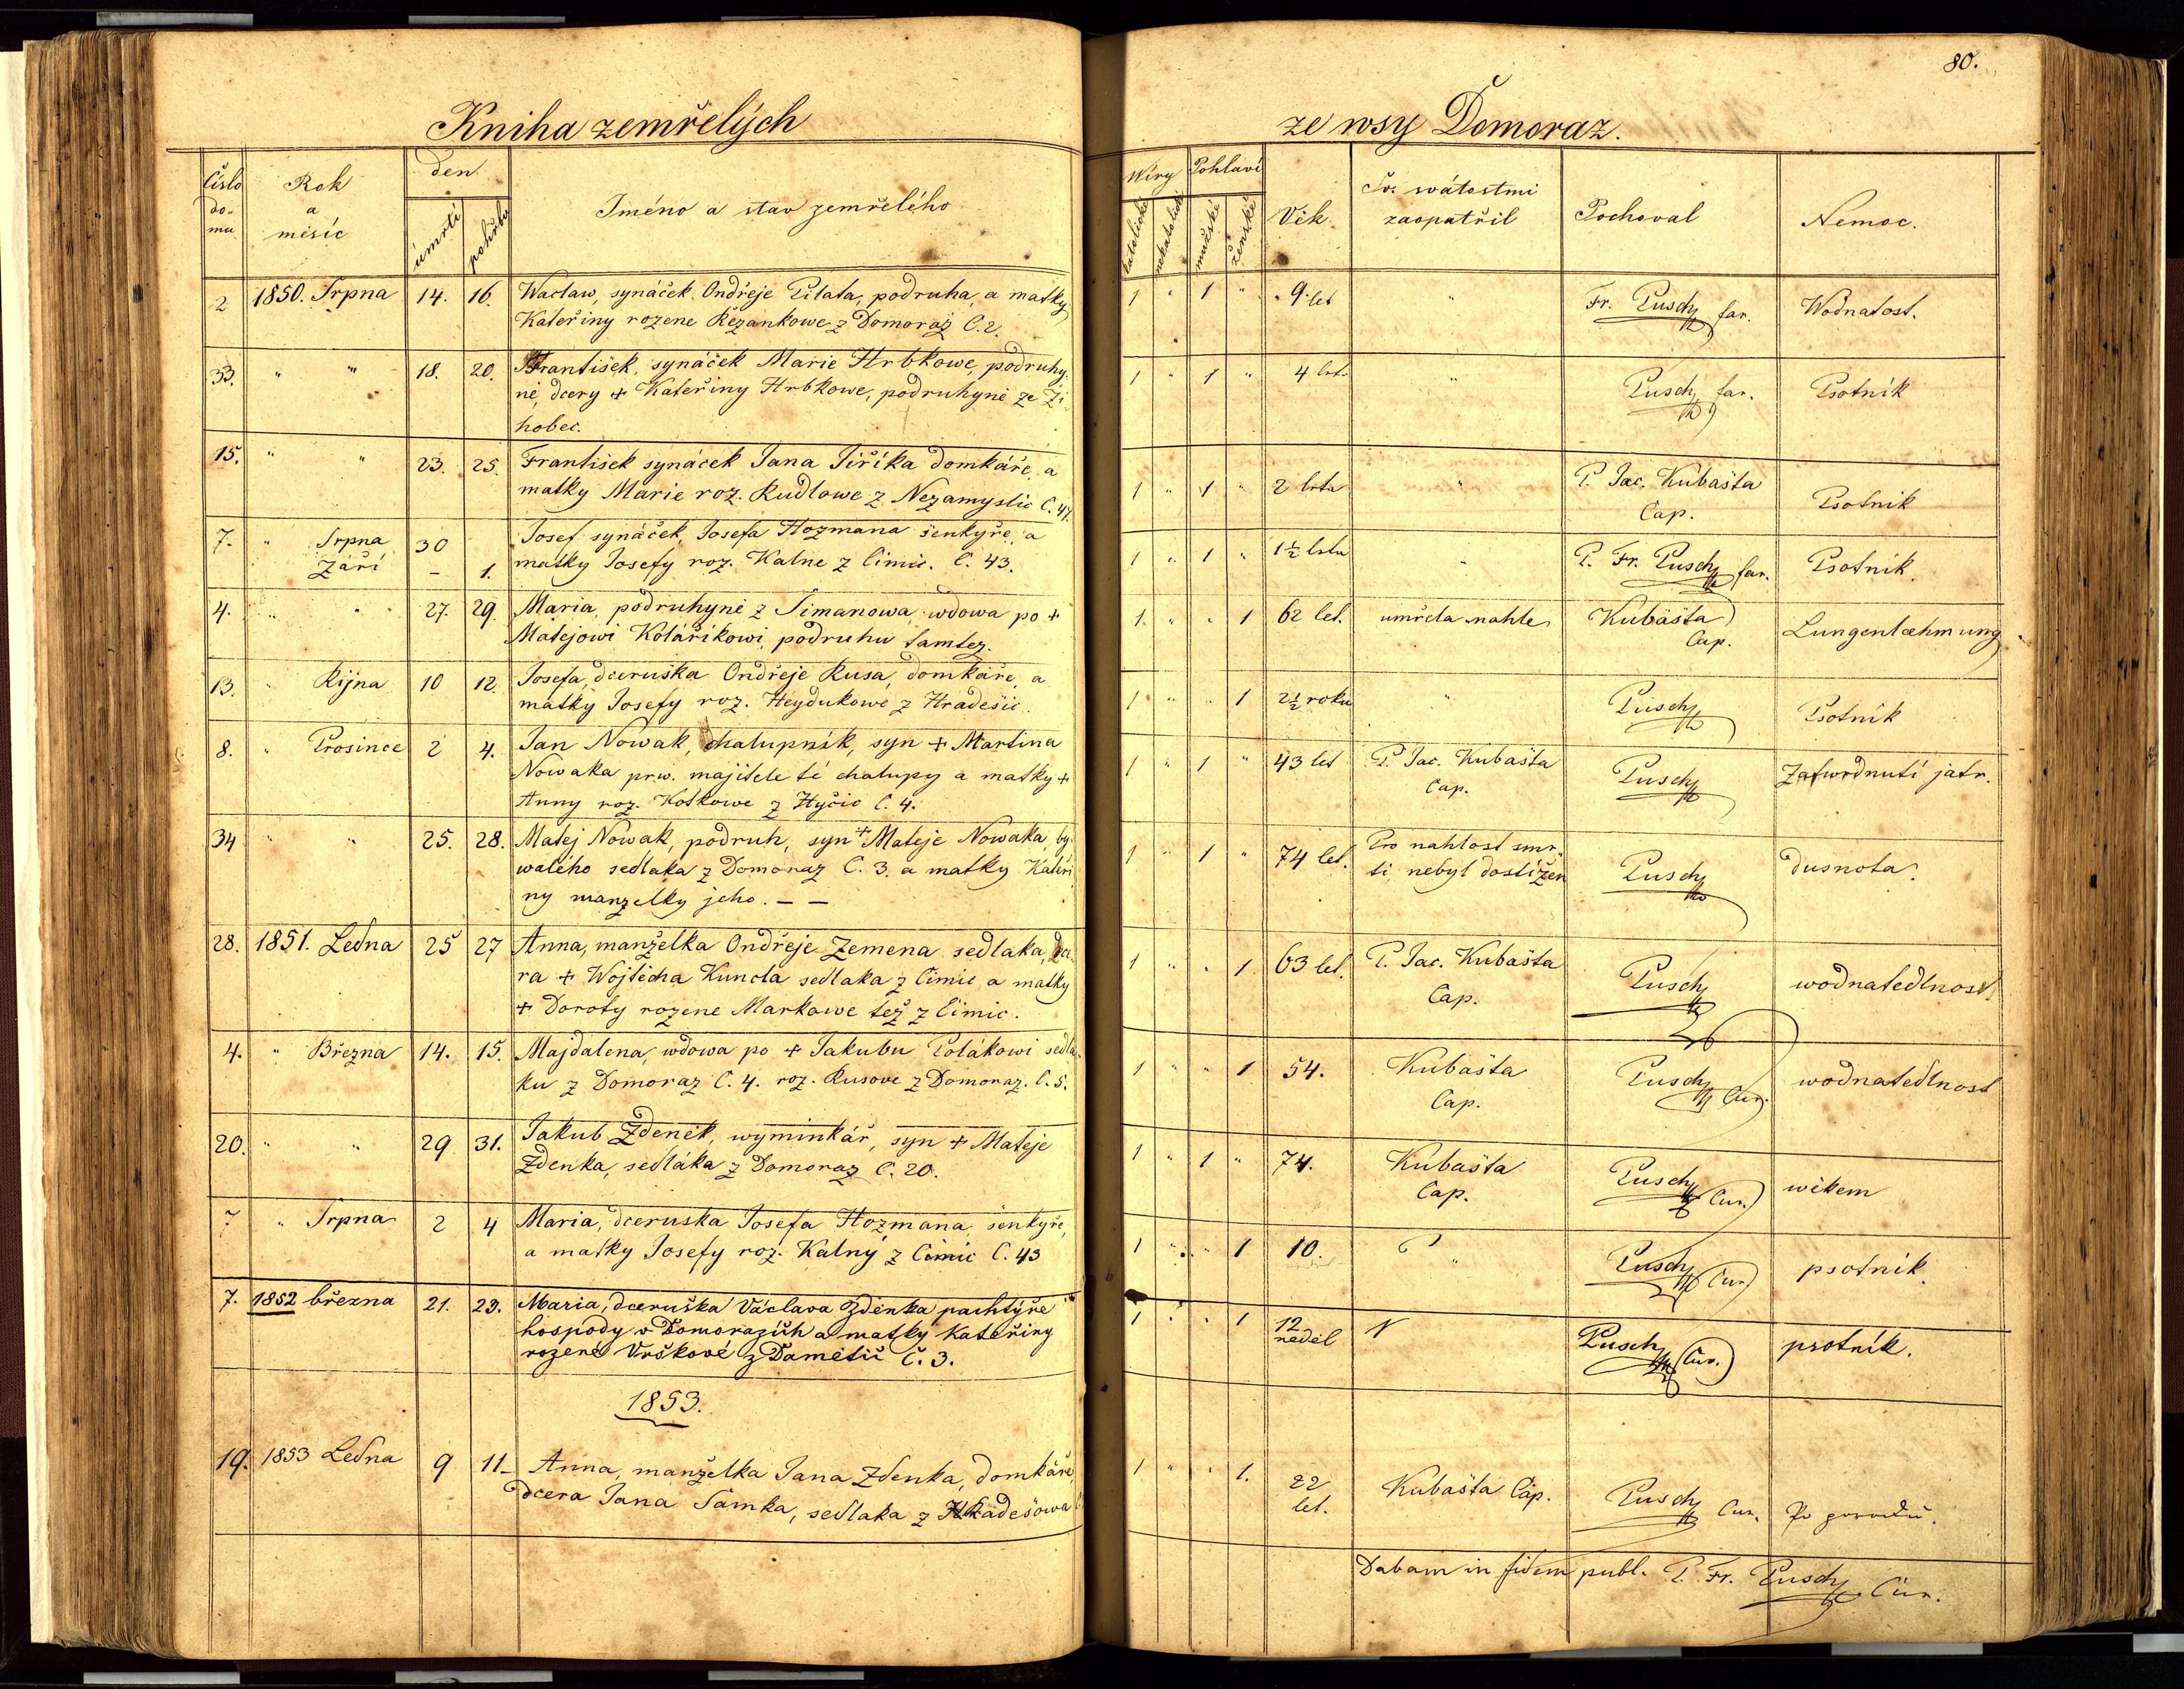 80.
Kniha zemřelých
ze wsy Domoraz.
Číslo do- mu
Rok a měsíc
den
úmrtí
pohřbu
Jméno a stav zemřelého
Wiry
katolické
nekatolické
Pohlaví
mužské
ženské
Věk
Sv. svátostmi zaopatřil
Pochoval
Nemoc.
2 1850. Srpna 14. 16. Waclaw, synáček Ondřeje Pilata, podruha, a matky 1 " 1 " 9 let " Fr. Pusch far. Wodnatost.
Kateřiny rozene Řezankowe z Domoraz C. 2.
33. " " 18. 20. František, synáček Marie Hrbkowe, podruhy- 1 " 1 " 4 let " Pusch far. Psotník
ně, dcery + Kateřiny Hrbkowe, podruhyně ze Ži
hobec.
15. " " 23. 25. František synáček Jana Jiříka domkáře, a 1 " 1 " 2 leta " P. Jac. Kubašta Cap. Psotnik
matky Marie roz. Rudlowe z Nezamyslic C. 47.
7. " Srpna 30 Josef synáček, Josefa Hozmana šenkyře, a 1 " 1 " 1½ leta " P. Fr. Pusch far. Psotník.
Září – 1. matky Josefy roz. Kalne z Čimic. C. 43.
4. " " 27. 29. Maria, podruhyně z Šimanowa, wdowa po + 1. " " 1 62 let. umřela nahle Kubašta Cap. Lungenlæhmung
Matějowi Kolaříkowi, podruhu tamtez.
13. " Řijna 10 12. Josefa, dceruška Ondřeje Rusa, domkáře, a 1 " " 1 2½ roku " Pusch Psotník
matky Josefy roz. Heydukowe z Hradešic.
8. " Prosince 2 4. Jan Nowak, chalupník, syn + Martina 1 " 1 " 43 let P. Jac. Kubašta Cap. Pusch Zatwrdnutí jatr.
Nowaka prw. majitele té chalupy a matky +
Anny roz. Kotkowe z Hyčic C. 4.
34 " " 25. 28. Matej Nowak, podruh, syn + Mateje Nowaka, by- 1 " 1 " 74 let. Pro nahlost smr- ti nebyl dostižen Pusch dusnota.
waleho sedlaka z Domoraz C. 3. a matky Kateři
ny manzelky jeho. – –
28. 1851. Ledna 25 27 Anna, manželka Ondřeje Zemena sedlaka, dce 1 " " 1 63 let. P. Jac. Kubašta Cap. Pusch wodnatedlnost.
ra + Wojtěcha Kuncla sedlaka z Čimic a matky
+ Doroty rozene Markowe též z Čimic.
4. " Března 14. 15. Majdalena, wdowa po + Jakubu Polákowi sedla- 1 " " 1 54. Kubašta Cap. Pusch Cur. wodnatedlnost
ku z Domoraz C. 4. roz. Rusove z Domoraz. C. 5.
20. " " 29 31. Jakub Zdeněk, wyminkář, syn + Mateje 1 " 1 " 74. Kubašta Cap. Pusch Cur. wěkem
Zdenka, sedláka z Domoraz C. 20.
7 " Srpna 2 4 Maria, dceruska Josefa Hozmana, šenkyře, 1 " " 1 10. " Pusch Cur. psotnik.
a matky Josefy roz. Kalný z Čimic C. 43
7. 1852 března 21. 23. Maria, dceruška Václava Zděnka pachtýře 1 " " 1 12 neděl Pusch Cur. psotník.
hospody v Domorazích a matky Kateřiny
rozené Vrškové z Damětič č. 3.
1853.
19. 1853 Ledna 9 11 Anna, manželka Jana Zdenka, domkáře, 1 " " 1. 22 let. Kubašta Cap. Pusch Cur. Po porodu.
dcera Jana Šamka, sedlaka z Hradešowa
Dabam in fidem publ. P. Fr. Pusch Cur.